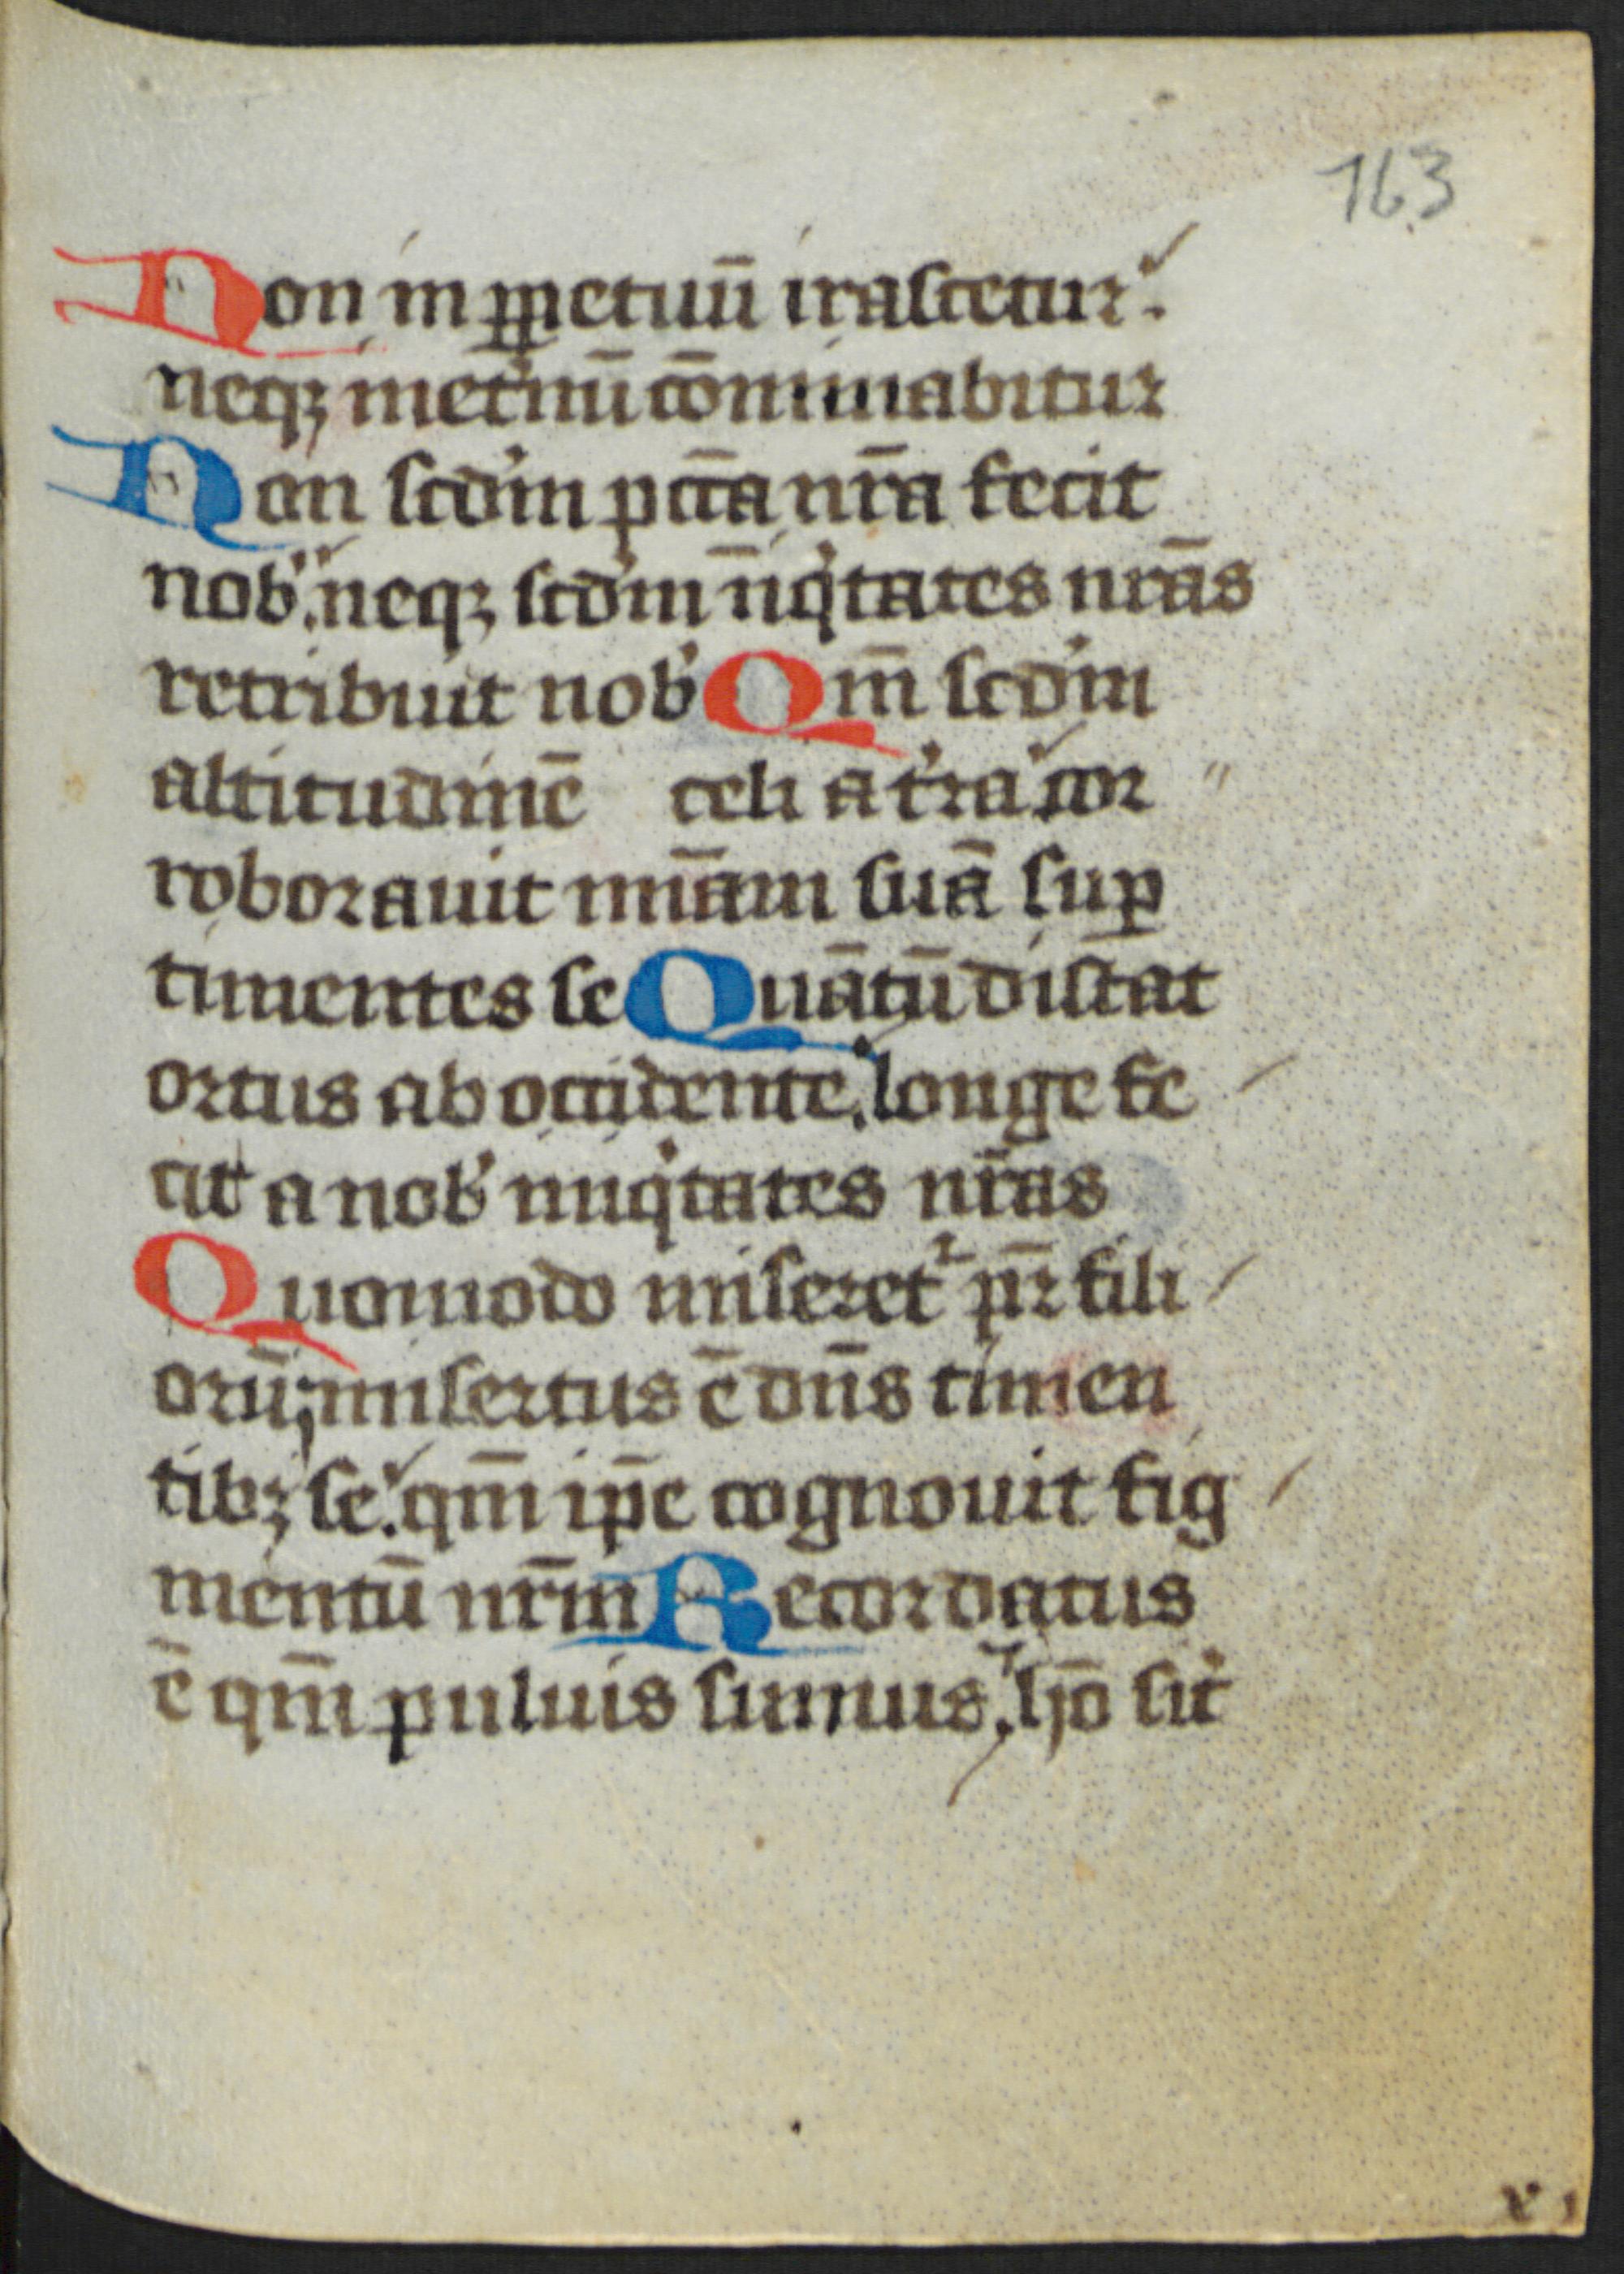 163
Non in ꝑpetuū irascetur.
neqꝫ inet'nū cōminabitur
Non scd'm pctā nrā fecit
nob'. neqꝫ scd'm iīqⁱtates nrās
retribuit nob' Qm̄ scd'm
altitudinē celi a t'ra cor
roborauit mīam suā suꝑ
timentes se Quātū distat
ortus ab occidente. longe fe
cit a nob' iniqⁱtates nrās
Quomodo miseret' pr̄ fili
orū; misertus ē dn̄s timen
tibꝫ se. qm̄ ip̄e cognouit fig
mentū nrm̄ Recordatus
ē qm̄ puluis sumus. hō sic'